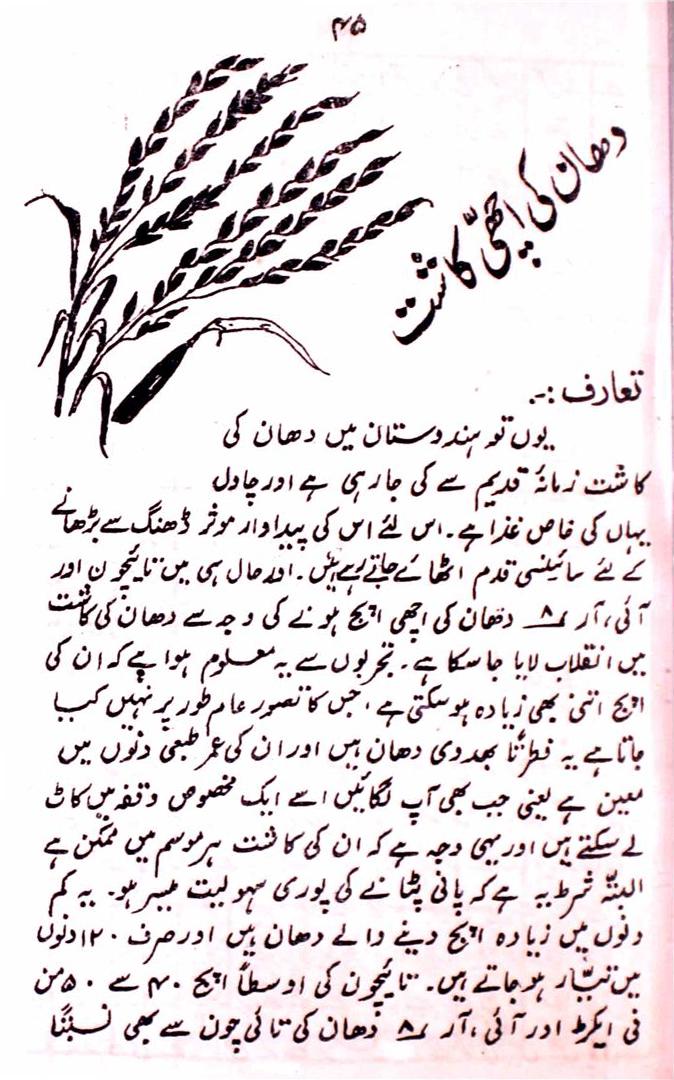 ۴۵
دھان کی اچھّی کاشت
تعارف :-.
یوں تو ہندوستان میں دھان کی
کاشت زمانۂ قدیم سے کی جارہی ہے اور چاول
یہاں کی خاص غذا ہے۔ اس لئے اس کی پیداوار موثر ڈھنگ سے بڑھانے
کے لئے سائینسی قدم اٹھائے جاتے رہے ہیں۔ اور حال ہی میں تائیچون اور
آئی، آر ۸ دھان کی اچھی اپج ہونے کی وجہ سے دھان کی کاشت
میں انقلاب لایا جاسکا ہے۔ تجربوں سے یہ معلوم ہوا ہے کہ ان کی
اپج اتنی بھی زیادہ ہوسکتی ہے، جس کا تصور عام طور پر نہیں کیا
جاتا ہے یہ فطرتاً بھدوی دھان ہیں اور ان کی عمر طبعی دنوں میں
معین ہے یعنی جب بھی آپ لگائیں اسے ایک مخصوص وقفہ میں کاٹ
لے سکتے ہیں اور یہی وجہ ہے کہ ان کی کاشت ہر موسم میں ممکن ہے
البتہّ شرط یہ ہے کہ پانی پٹانے کی پوری سہولیت میسر ہو۔ یہ کم
دنوں میں زیادہ اپج دینے والے دھان ہیں اور صرف ۱۲۰ دنوں
میں تیّار ہوجاتے ہیں۔ تائیچون کی اوسطاً اپج ۴۰ سے ۵۰ من
فی ایکڑ اور آئی، آر ۸ دھان کی تائی چون سے بھی نسبتاً